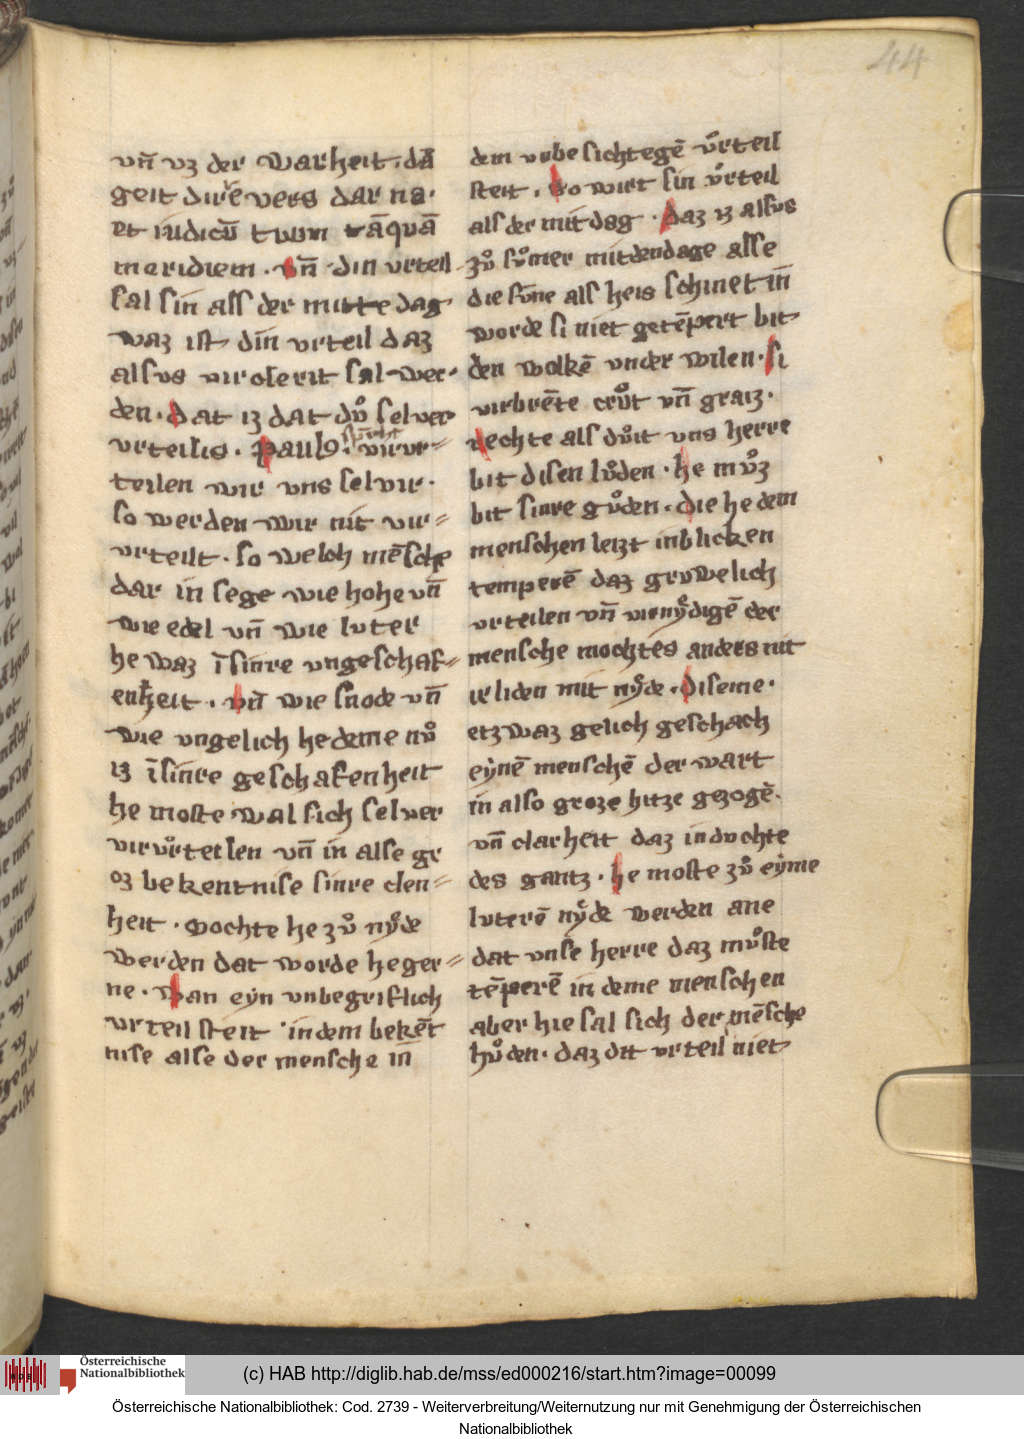 44
vn̄ vz der warheit · dā
geit dirre vers dar na ·
et iudicū tuum tāquā
meridiem · vn̄ din vrteil
sal sin als der mitte dag
waz ist din vrteil daz
alsus viroferit sal wer-
den · dat iz dat dv̊ selver
vrteilis · paulꝰ · vir vr=
teilen wir vns selvir ·
so werden wir nit vir=
vrteilt · so welch mēsche
dar in sege wie hohe vn̄
wie edel vn̄ wie luter
he waz ī sinre vngeschaf=
enheit · vn̄ wie snode vn̄
wie vngelich he deme nv̊
iz ī sinre geschafenheit
he moste wal sich selver
virvrteilen vn̄ in alse gr
oz bekentnise sinre clen=
heit · Mochte he zv̊ nẙde
werden dat worde he ger=
ne · wan eyn vnbegriflich
vrteil steit in dem bekēt
nise alse der mensche in
dem vnbesichtegē vrteil
steit · so wirt sin vrteil
als der mitdag · Daz iz alsus
zv̊ sv̊mer mitdendage alse
die sv̄ne als heis schinet in
worde si niet getēpert bit
den wolkē vnder wilen · si
virbrēte crv̊t vn̄ graiz ·
Rechte als dv̊it vns herre
bit disen lv̊den · he mv̊z
bit sinre gv̊den · die he dem
menschen leizt inblicken
temperē daz gruwelich
vrteilen vn̄ virnẙdigē der
mensche mochtes anders nit
irliden mit nẙde · Diseme ·
etzwaz gelich geschach
eynē menschē der wart
in also groze hitze gezogē ·
vn̄ clarheit daz in duchte
des gantz · he moste zv̊ eyme
luterē nẙde werden ane
dat vnse herre daz mv̊ste
tēperē in deme menschen
aber hie sal sich der mēsche
hv̊den · daz dit vrteil niet
Österreichische
Nationalbibliothek
(c) HAB http://diglib.hab.de/mss/ed000216/start.htm?image=00099
Österreichische Nationalbibliothek: Cod. 2739 - Weiterverbreitung/Weiternutzung nur mit Genehmigung der Österreichischen
Nationalbibliothek